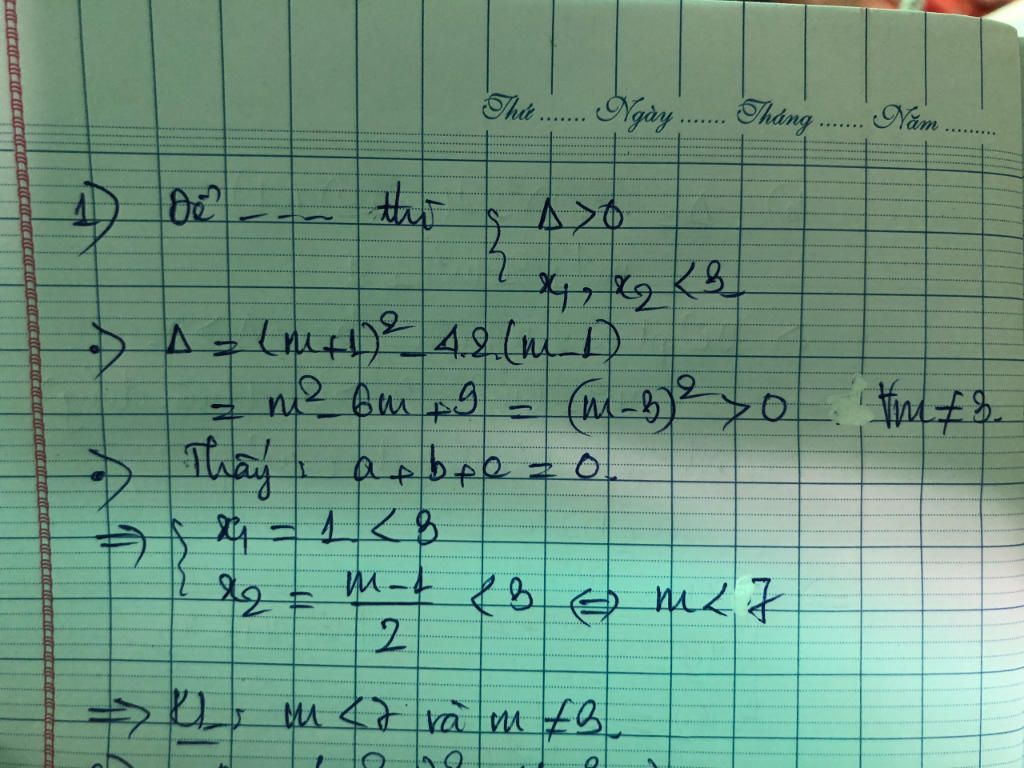 Thứ ....... Ngày ....... Tháng ....... Năm .........
1) Để ---- thì { Δ > 0
x₁, x₂ < 3
•) Δ = (m+1)² - 4.2.(m-1)
= m² - 6m + 9 = (m-3)² > 0 ∀m ≠ 3.
•) Thấy: a + b + c = 0.
⇒ { x₁ = 1 < 3
x₂ = (m-1)/2 < 3 ⇔ m < 7
⇒ KL: m < 7 và m ≠ 3.